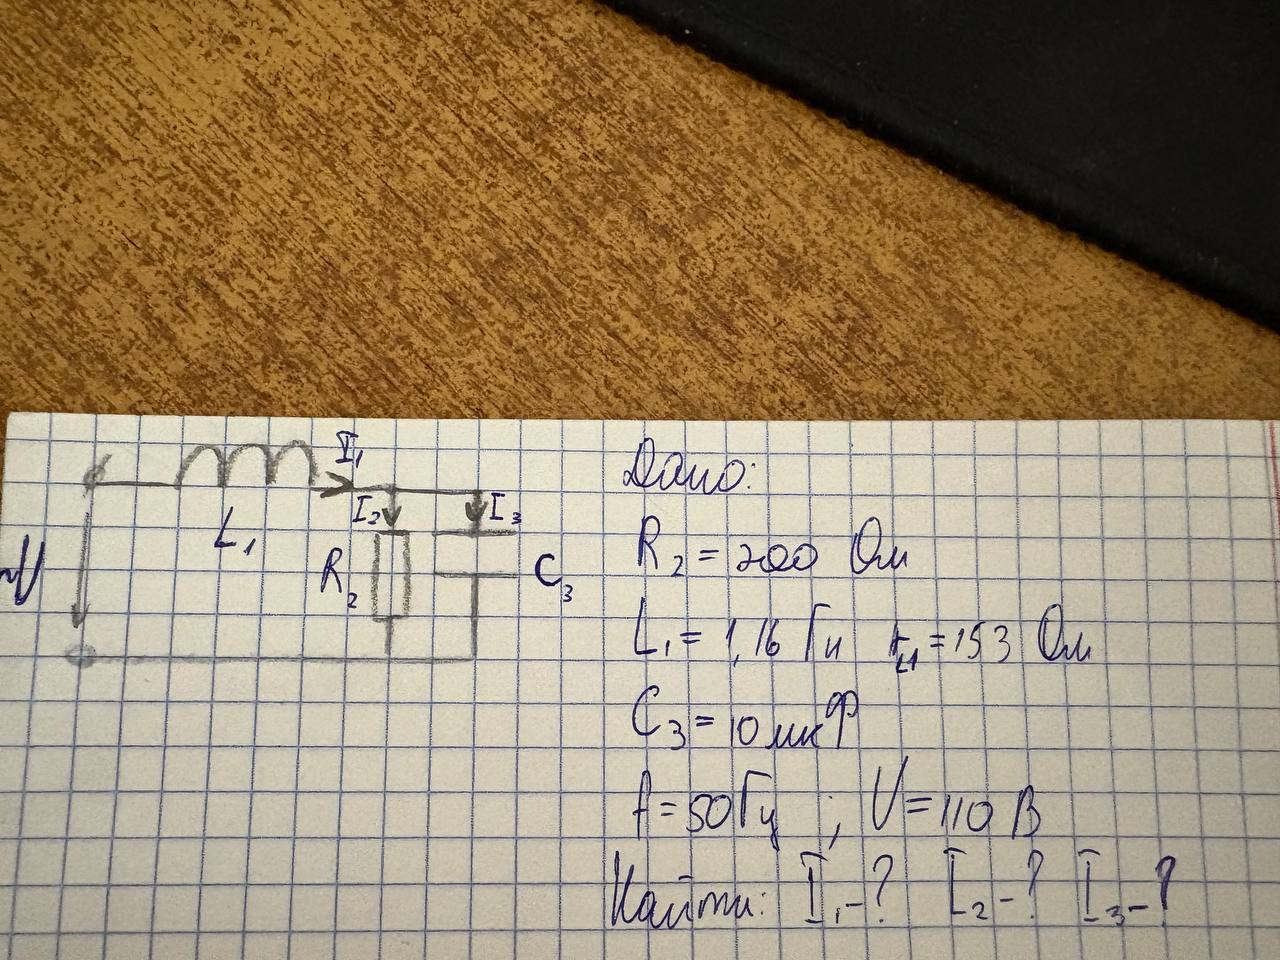 I₁
I₂ I₃
L₁
U R₂ C₃
Дано:
R₂ = 200 Ом
L₁ = 1,16 Гн r_L1 = 153 Ом
C₃ = 10 мкФ
f = 50 Гц ; U = 110 В
Найти: I₁ - ? I₂ - ? I₃ - ?